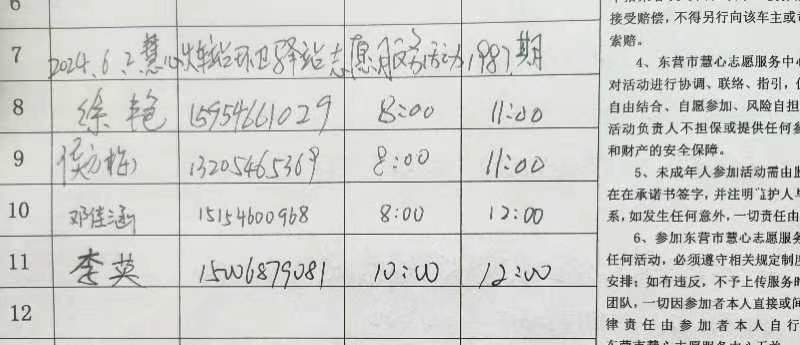 6
7 2024.6.2 慧心火车站环卫驿站志愿服务活动1987期
8 徐艳 15954661029 8:00 11:00
9 侯方梅 13205465369 8:00 11:00
10 邓佳涵 15154600968 8:00 12:00
11 李英 15006879081 10:00 12:00
12
接受赔偿，不得另行向该车主或
索赔。
4、东营市慧心志愿服务中心
对活动进行协调、联络、指引，
自由结合、自愿参加、风险自担
活动负责人不担保或提供任何
和财产的安全保障。
5、未成年人参加活动需由
在在承诺书签字，并注明
护人与
系，如发生任何意外，一切责任由
6、参加东营市慧心志愿服务
任何活动，必须遵守相关规定制度
安排；如有违反，不予上传服务时
团队，一切因参加者本人直接或间
律责任由参加者本人自行